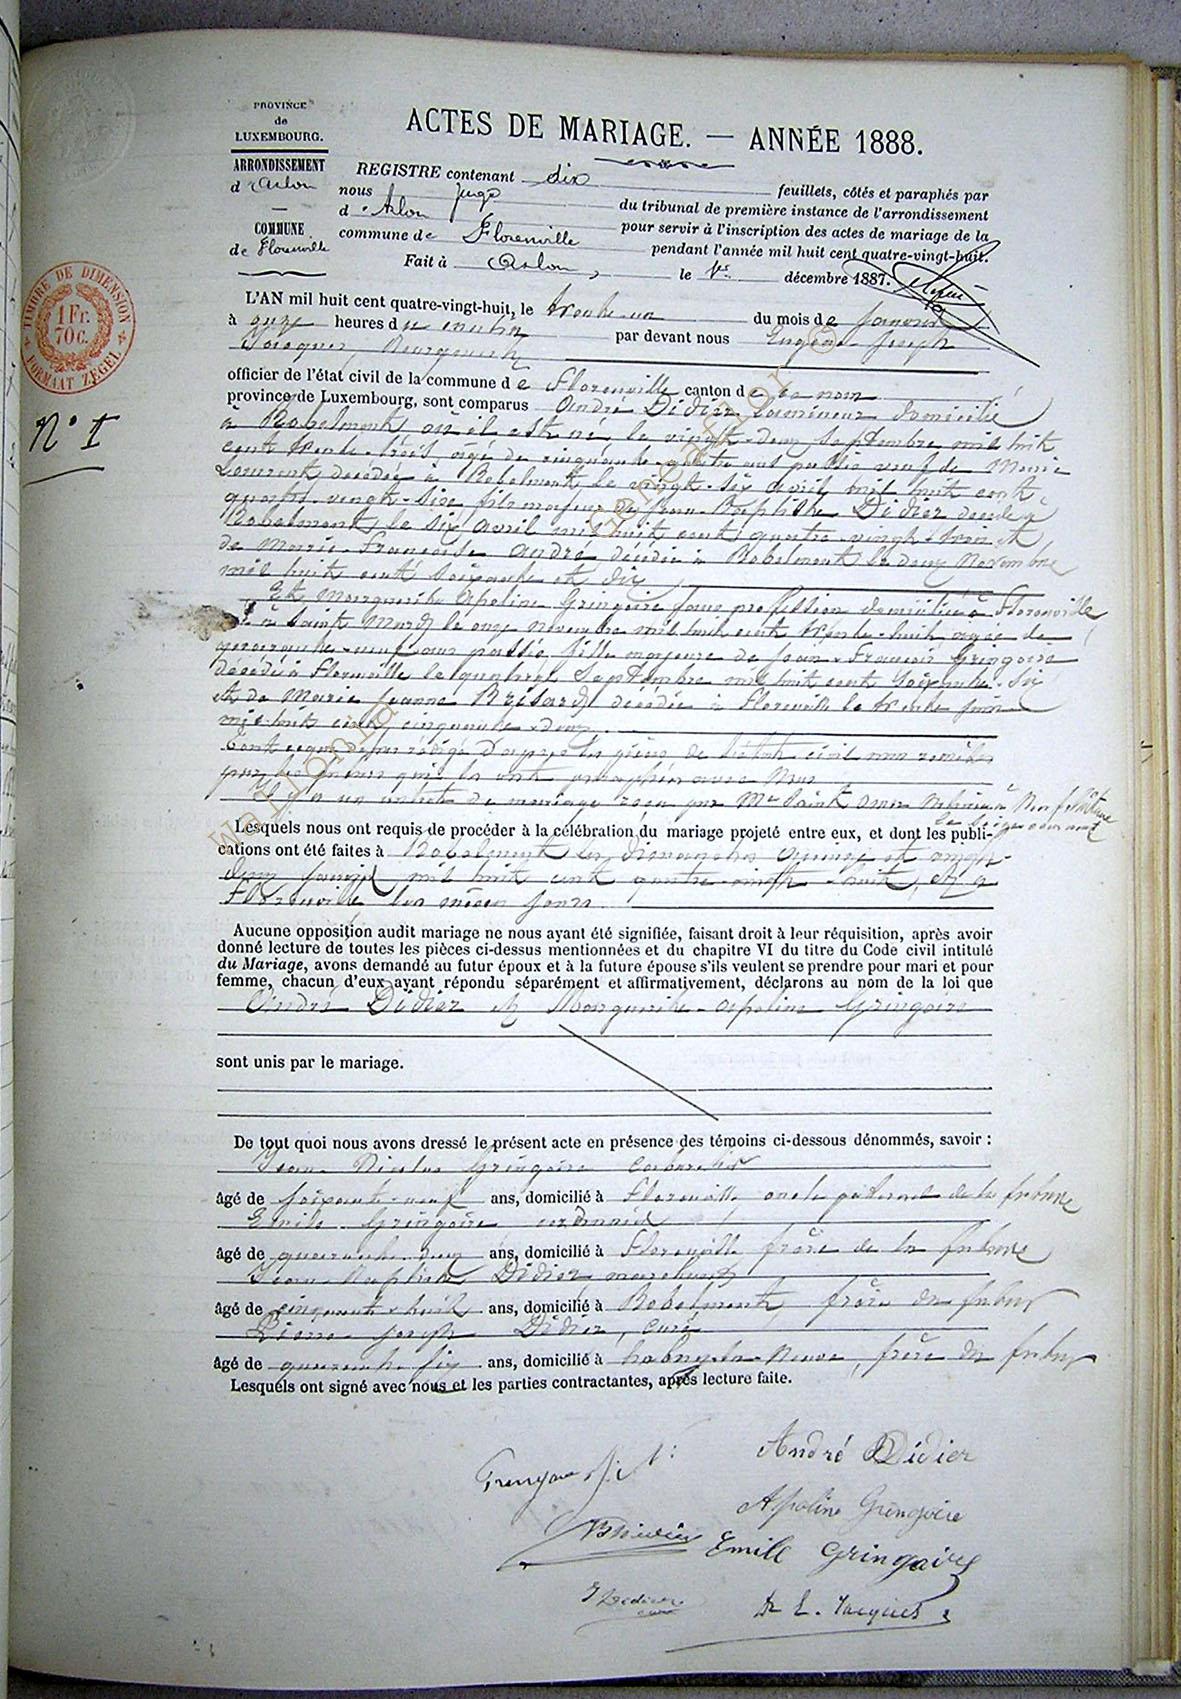 PROVINCE
de
LUXEMBOURG.
ARRONDISSEMENT
d'Arlon
COMMUNE
de Florenville
TIMBRE DE DIMENSION
1 Fr.
70 C.
FORMAAT ZEGEL
N° 1
ACTES DE MARIAGE. — ANNÉE 1888.
REGISTRE contenant dix feuillets, côtés et paraphés par
nous Juge du tribunal de première instance de l'arrondissement
d'Arlon pour servir à l'inscription des actes de mariage de la
commune de Florenville pendant l'année mil huit cent quatre-vingt-huit.
Fait à Arlon, le décembre 1887.
L'AN mil huit cent quatre-vingt-huit, le trente-un du mois de janvier
à onze heures du matin par devant nous Eugène Joseph
Jacques, Bourgmestre
officier de l'état civil de la commune de Florenville canton de ce nom
province de Luxembourg, sont comparus André Didier domicilié
à Robelmont où il est né le vingt-deux septembre mil huit
cent trente-trois, âgé de cinquante-quatre ans passés veuf de Marie
Laurent décédée à Robelmont le vingt-six avril mil huit cent
quatre-vingt-six fils majeur de Jean-Baptiste Didier décédé à
Robelmont le six avril mil huit cent quatre-vingt-trois et
de Marie-Françoise André décédée à Robelmont le deux Novembre
mil huit cent soixante et dix
Et Marguerite Apoline Gringoire sans profession domiciliée à Florenville
née à Saint Mard le onze novembre mil huit cent trente-huit agée de
quarante-neuf ans passés fille majeure de Jean-François Gringoire
décédé à Florenville le quatre Septembre mil huit cent soixante-six
et de Marie Jeanne Brisard décédée à Florenville le trente juin
mil huit cent cinquante-deux
d'après les pièces de l'état civil nous remises
par les futurs qui les ont paraphées avec Nous
Il y a un contrat de mariage reçu par Me Saint Omer Notaire à Neufchâteau
Lesquels nous ont requis de procéder à la célébration du mariage projeté entre eux, et dont les publi-
cations ont été faites à Robelmont les dimanches quinze et vingt-
deux janvier mil huit cent quatre-vingt-huit, et à
Florenville les mêmes jours.
Aucune opposition audit mariage ne nous ayant été signifiée, faisant droit à leur réquisition, après avoir
donné lecture de toutes les pièces ci-dessus mentionnées et du chapitre VI du titre du Code civil intitulé
du Mariage, avons demandé au futur époux et à la future épouse s'ils veulent se prendre pour mari et pour
femme, chacun d'eux ayant répondu séparément et affirmativement, déclarons au nom de la loi que
André Didier et Marguerite-Apoline Gringoire
sont unis par le mariage.
De tout quoi nous avons dressé le présent acte en présence des témoins ci-dessous dénommés, savoir :
Jean Nicolas Gringoire cabaretier
âgé de soixante-neuf ans, domicilié à Florenville oncle paternel de la future
Emile Gringoire
âgé de quarante-deux ans, domicilié à Florenville frère de la future
Jean-Baptiste Didier marchand
âgé de cinquante-huit ans, domicilié à Robelmont, frère du futur
Pierre-Joseph Didier, curé
âgé de quarante six ans, domicilié à Habay-la-Neuve, frère du futur
Lesquels ont signé avec nous et les parties contractantes, après lecture faite.
André Didier
Gringoire J. N.
Apoline Gringoire
Emile Gringoire
Dr E. Jacques
Wallonia Geneaflor ©